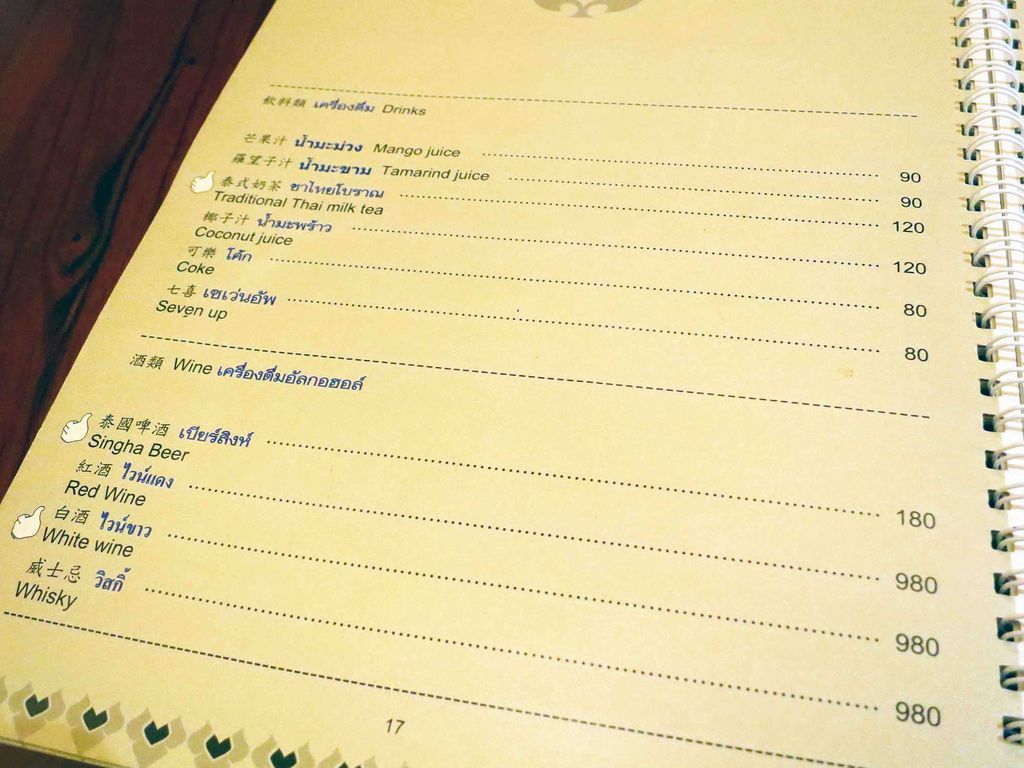 飲料類 เครื่องดื่ม Drinks
芒果汁 น้ำมะม่วง Mango juice 90
羅望子汁 น้ำมะขาม Tamarind juice 90
泰式奶茶 ชาไทยโบราณ 120
Traditional Thai milk tea
椰子汁 น้ำมะพร้าว 120
Coconut juice
可樂 โค้ก 80
Coke
七喜 เซเว่นอัพ 80
Seven up
酒類 Wine เครื่องดื่มอัลกอฮอล์
泰國啤酒 เบียร์สิงห์ 180
Singha Beer
紅酒 ไวน์แดง 980
Red Wine
白酒 ไวน์ขาว 980
White wine
威士忌 วิสกี้ 980
Whisky
17